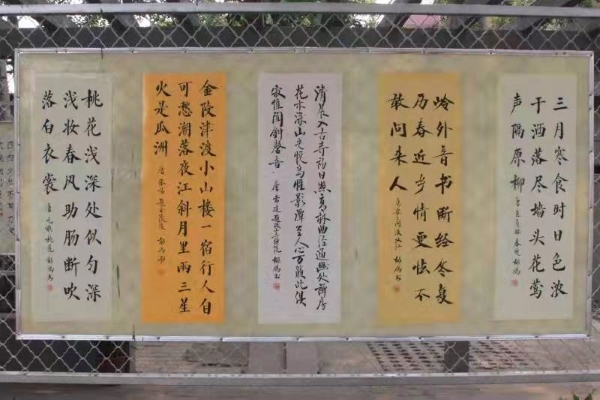 三月寒食时日色浓
于洒落尽墙头花莺
声隔原柳
岭外音书断经冬复
历春近乡情更怯不
敢问来人
清晨入古寺初日照高林曲径通幽处禅房
花木深山光悦鸟性影潭空人心万籁此俱
寂惟闻钟磬音
金陵津渡小山楼一宿行人自
可愁潮落夜江斜月里两三星
火是瓜洲
桃花浅深处似匀深
浅妆春风助肠断吹
落白衣裳